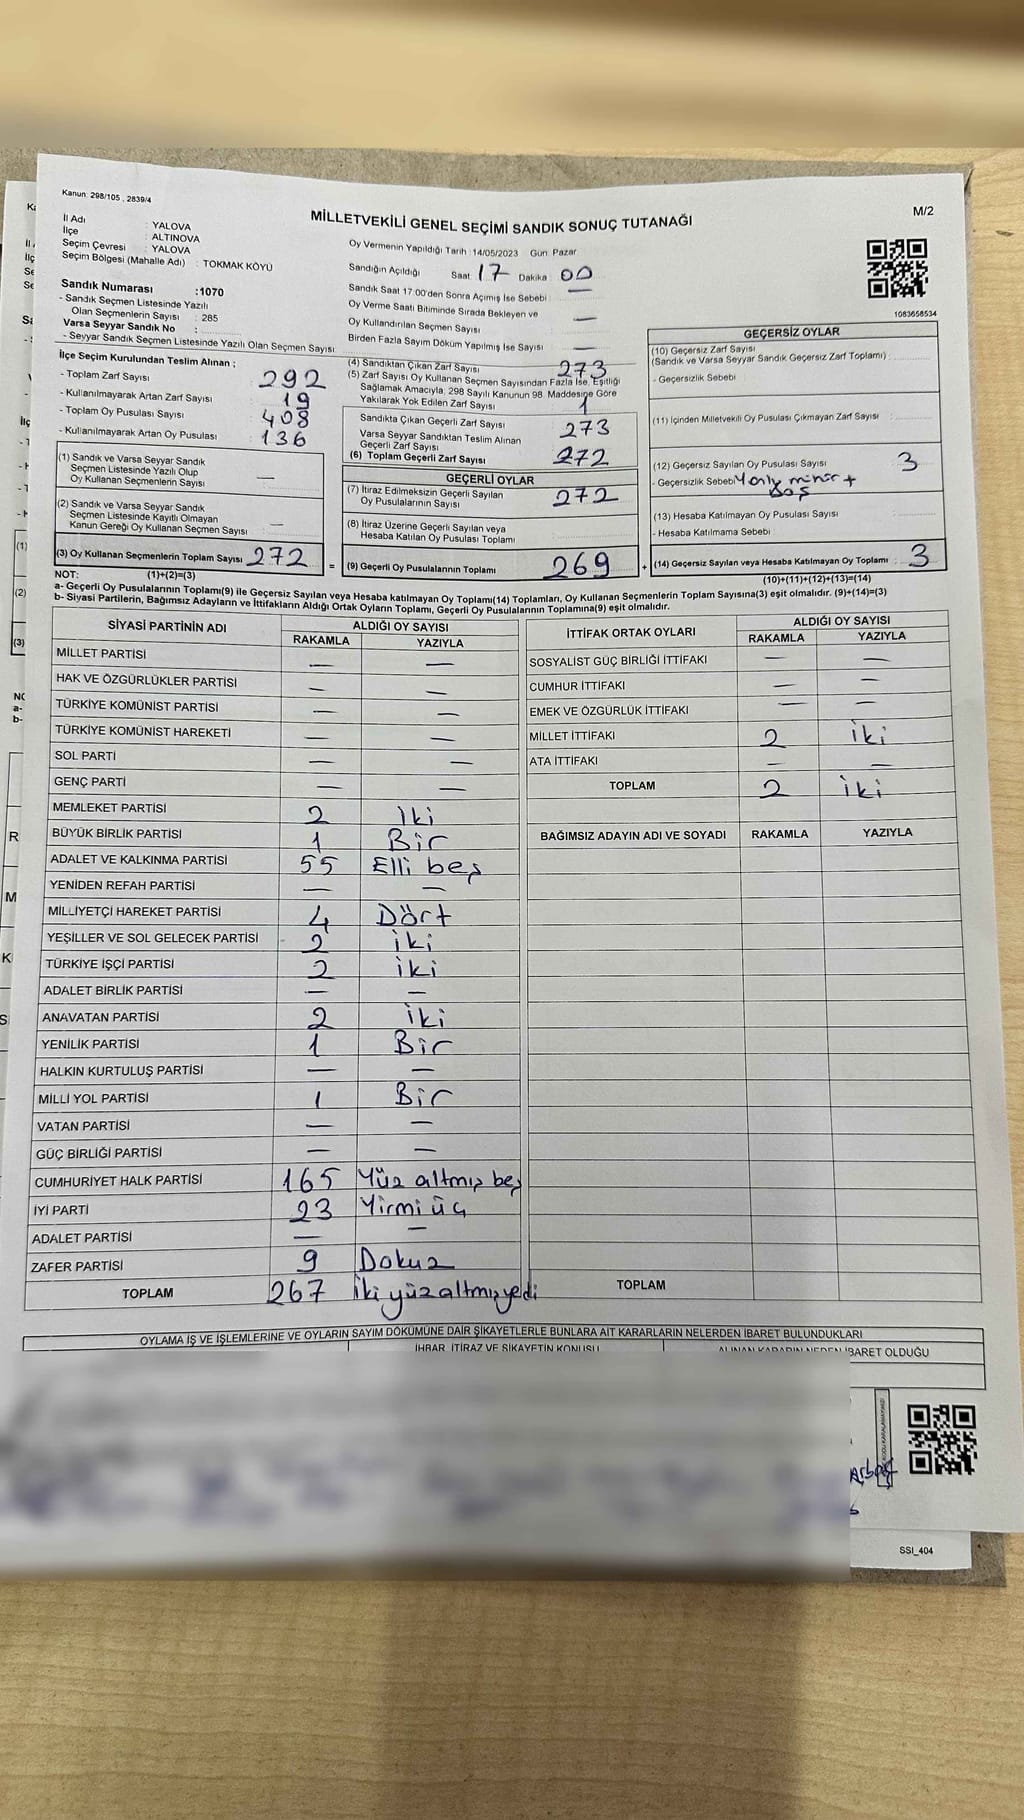 Kanun: 298/105 , 2839/4
MİLLETVEKİLİ GENEL SEÇİMİ SANDIK SONUÇ TUTANAĞI
M/2
İl Adı : YALOVA
İlçe : ALTINOVA
Seçim Çevresi : YALOVA
Seçim Bölgesi (Mahalle Adı) : TOKMAK KÖYÜ
Sandık Numarası :1070
- Sandık Seçmen Listesinde Yazılı
Olan Seçmenlerin Sayısı : 285
Varsa Seyyar Sandık No :
- Seyyar Sandık Seçmen Listesinde Yazılı Olan Seçmen Sayısı
Oy Vermenin Yapıldığı Tarih : 14/05/2023 Gün: Pazar
Sandığın Açıldığı Saat 17 Dakika 00
Sandık Saat 17.00'den Sonra Açımış İse Sebebi —
Oy Verme Saati Bitiminde Sırada Bekleyen ve
Oy Kullandırılan Seçmen Sayısı —
Birden Fazla Sayım Döküm Yapılmış İse Sayısı —
1083658534
İlçe Seçim Kurulundan Teslim Alınan :
- Toplam Zarf Sayısı 292
- Kullanılmayarak Artan Zarf Sayısı 19
- Toplam Oy Pusulası Sayısı 408
- Kullanılmayarak Artan Oy Pusulası 136
(1) Sandık ve Varsa Seyyar Sandık
Seçmen Listesinde Yazılı Olup
Oy Kullanan Seçmenlerin Sayısı —
(2) Sandık ve Varsa Seyyar Sandık
Seçmen Listesinde Kayıtlı Olmayan
Kanun Gereği Oy Kullanan Seçmen Sayısı —
(3) Oy Kullanan Seçmenlerin Toplam Sayısı 272 =
(4) Sandıktan Çıkan Zarf Sayısı 273
(5) Zarf Sayısı Oy Kullanan Seçmen Sayısından Fazla İse, Eşitliği
Sağlamak Amacıyla, 298 Sayılı Kanunun 98. Maddesine Göre
Yakılarak Yok Edilen Zarf Sayısı 1
Sandıkta Çıkan Geçerli Zarf Sayısı 273
Varsa Seyyar Sandıktan Teslim Alınan
Geçerli Zarf Sayısı
(6) Toplam Geçerli Zarf Sayısı 272
GEÇERLİ OYLAR
(7) İtiraz Edilmeksizin Geçerli Sayılan
Oy Pusulalarının Sayısı 272
(8) İtiraz Üzerine Geçerli Sayılan veya
Hesaba Katılan Oy Pusulası Toplamı
(9) Geçerli Oy Pusulalarının Toplamı 269 +
GEÇERSİZ OYLAR
(10) Geçersiz Zarf Sayısı
(Sandık ve Varsa Seyyar Sandık Geçersiz Zarf Toplamı)
- Geçersizlik Sebebi
(11) İçinden Milletvekili Oy Pusulası Çıkmayan Zarf Sayısı
(12) Geçersiz Sayılan Oy Pusulası Sayısı 3
- Geçersizlik Sebebi
Boş
(13) Hesaba Katılmayan Oy Pusulası Sayısı
- Hesaba Katılmama Sebebi
(14) Geçersiz Sayılan veya Hesaba Katılmayan Oy Toplamı : 3
NOT: (1)+(2)=(3)
(10)+(11)+(12)+(13)=(14)
a- Geçerli Oy Pusulalarının Toplamı(9) ile Geçersiz Sayılan veya Hesaba katılmayan Oy Toplamı(14) Toplamları, Oy Kullanan Seçmenlerin Toplam Sayısına(3) eşit olmalıdır. (9)+(14)=(3)
b- Siyasi Partilerin, Bağımsız Adayların ve İttifakların Aldığı Ortak Oyların Toplamı, Geçerli Oy Pusulalarının Toplamına(9) eşit olmalıdır.
SİYASİ PARTİNİN ADI ALDIĞI OY SAYISI
RAKAMLA YAZIYLA
MİLLET PARTİSİ — —
HAK VE ÖZGÜRLÜKLER PARTİSİ — —
TÜRKİYE KOMÜNİST PARTİSİ — —
TÜRKİYE KOMÜNİST HAREKETİ — —
SOL PARTİ — —
GENÇ PARTİ — —
MEMLEKET PARTİSİ 2 İki
BÜYÜK BİRLİK PARTİSİ 1 Bir
ADALET VE KALKINMA PARTİSİ 55 Elli beş
YENİDEN REFAH PARTİSİ — —
MİLLİYETÇİ HAREKET PARTİSİ 4 Dört
YEŞİLLER VE SOL GELECEK PARTİSİ 2 iki
TÜRKİYE İŞÇİ PARTİSİ 2 iki
ADALET BİRLİK PARTİSİ — —
ANAVATAN PARTİSİ 2 iki
YENİLİK PARTİSİ 1 Bir
HALKIN KURTULUŞ PARTİSİ — —
MİLLİ YOL PARTİSİ 1 Bir
VATAN PARTİSİ — —
GÜÇ BİRLİĞİ PARTİSİ — —
CUMHURİYET HALK PARTİSİ 165 Yüz altmış beş
İYİ PARTİ 23 Yirmi üç
ADALET PARTİSİ — —
ZAFER PARTİSİ 9 Dokuz
TOPLAM 267 İki yüz altmış yedi
İTTİFAK ORTAK OYLARI ALDIĞI OY SAYISI
RAKAMLA YAZIYLA
SOSYALİST GÜÇ BİRLİĞİ İTTİFAKI — —
CUMHUR İTTİFAKI — —
EMEK VE ÖZGÜRLÜK İTTİFAKI — —
MİLLET İTTİFAKI 2 iki
ATA İTTİFAKI — —
TOPLAM 2 iki
BAĞIMSIZ ADAYIN ADI VE SOYADI RAKAMLA YAZIYLA
TOPLAM
OYLAMA İŞ VE İŞLEMLERİNE VE OYLARIN SAYIM DÖKÜMÜNE DAİR ŞİKAYETLERLE BUNLARA AİT KARARLARIN NELERDEN İBARET BULUNDUKLARI
İHBAR, İTİRAZ VE ŞİKAYETİN KONUSU ALINAN KARARIN NEDEN İBARET OLDUĞU
SSI_404